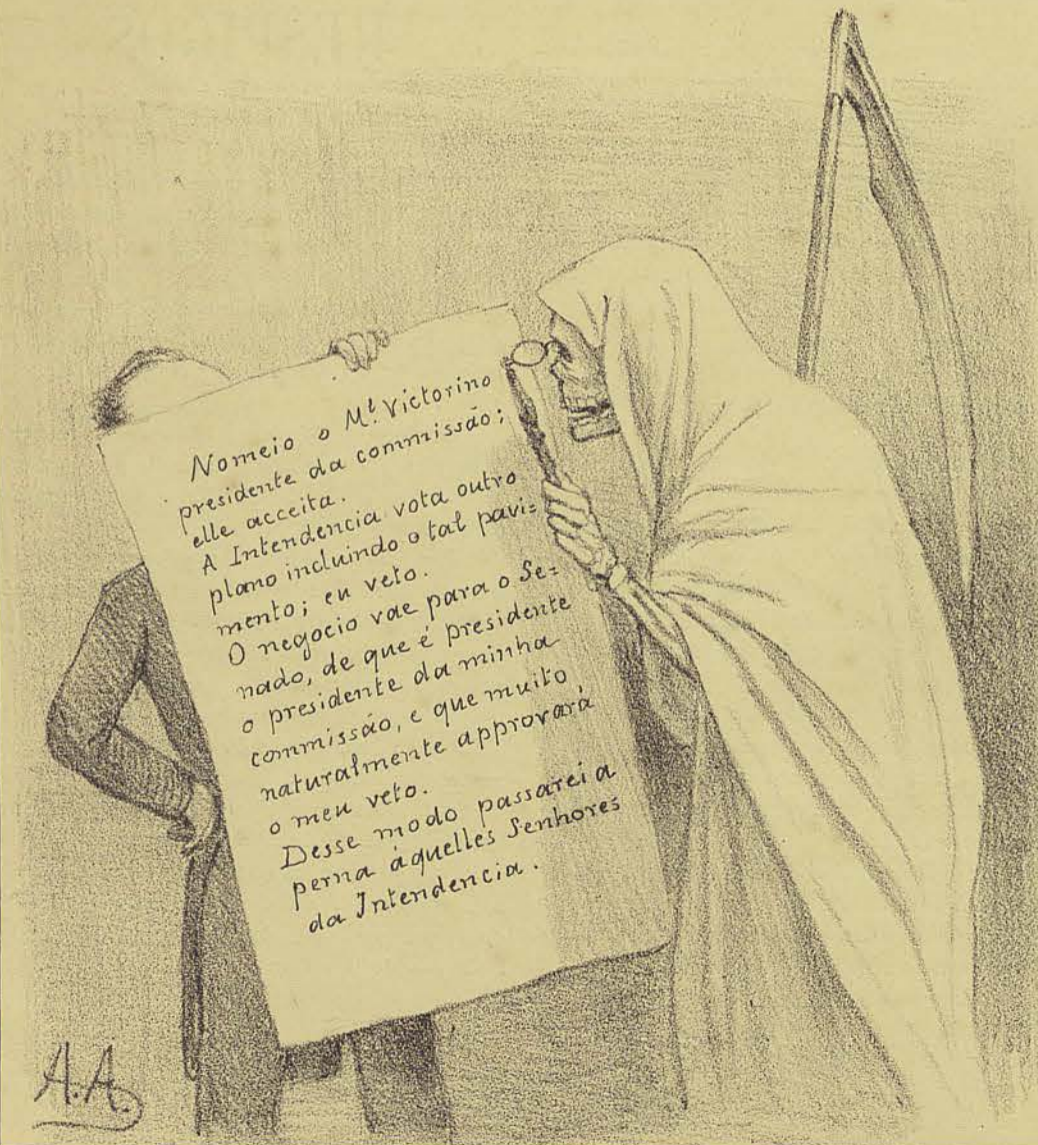 Nomeio o M.l Victorino
presidente da commissão;
elle acceita.
A Intendencia vota outro
plano incluindo o tal pavi=
mento; eu veto.
O negocio vae para o Se=
nado, de que é presidente
o presidente da minha
commissão, e que muito
naturalmente approvará
o meu veto.
Desse modo passarei a
perna áquelles Senhores
da Intendencia.
A.A.